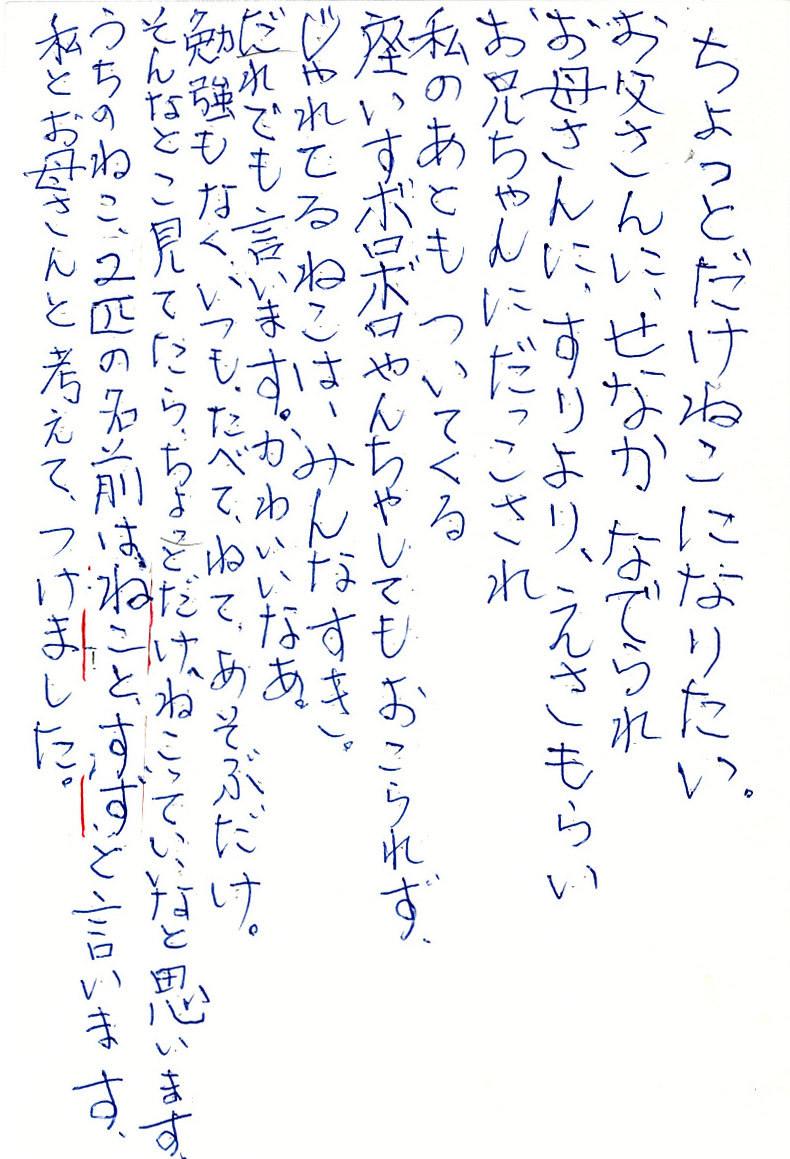 ちょっとだけねこになりたい。
お父さんに、せなか なでられ
お母さんに、すりより、えさもらい
お兄ちゃんにだっこされ
私のあとも ついてくる
座いすボロボロやんちゃしてもおこられず、
じゃれてるねこは、みんなすき。
だれでも言います。かわいいなあ。
勉強もなく、いつも、たべて、ねて、あそぶだけ。
そんなとこ見てたら、ちょっとだけ、ねこっていいなと思います。
うちのねこ、2匹の名前は、ねこと、すず、と言います。
私とお母さんと考えて、つけました。